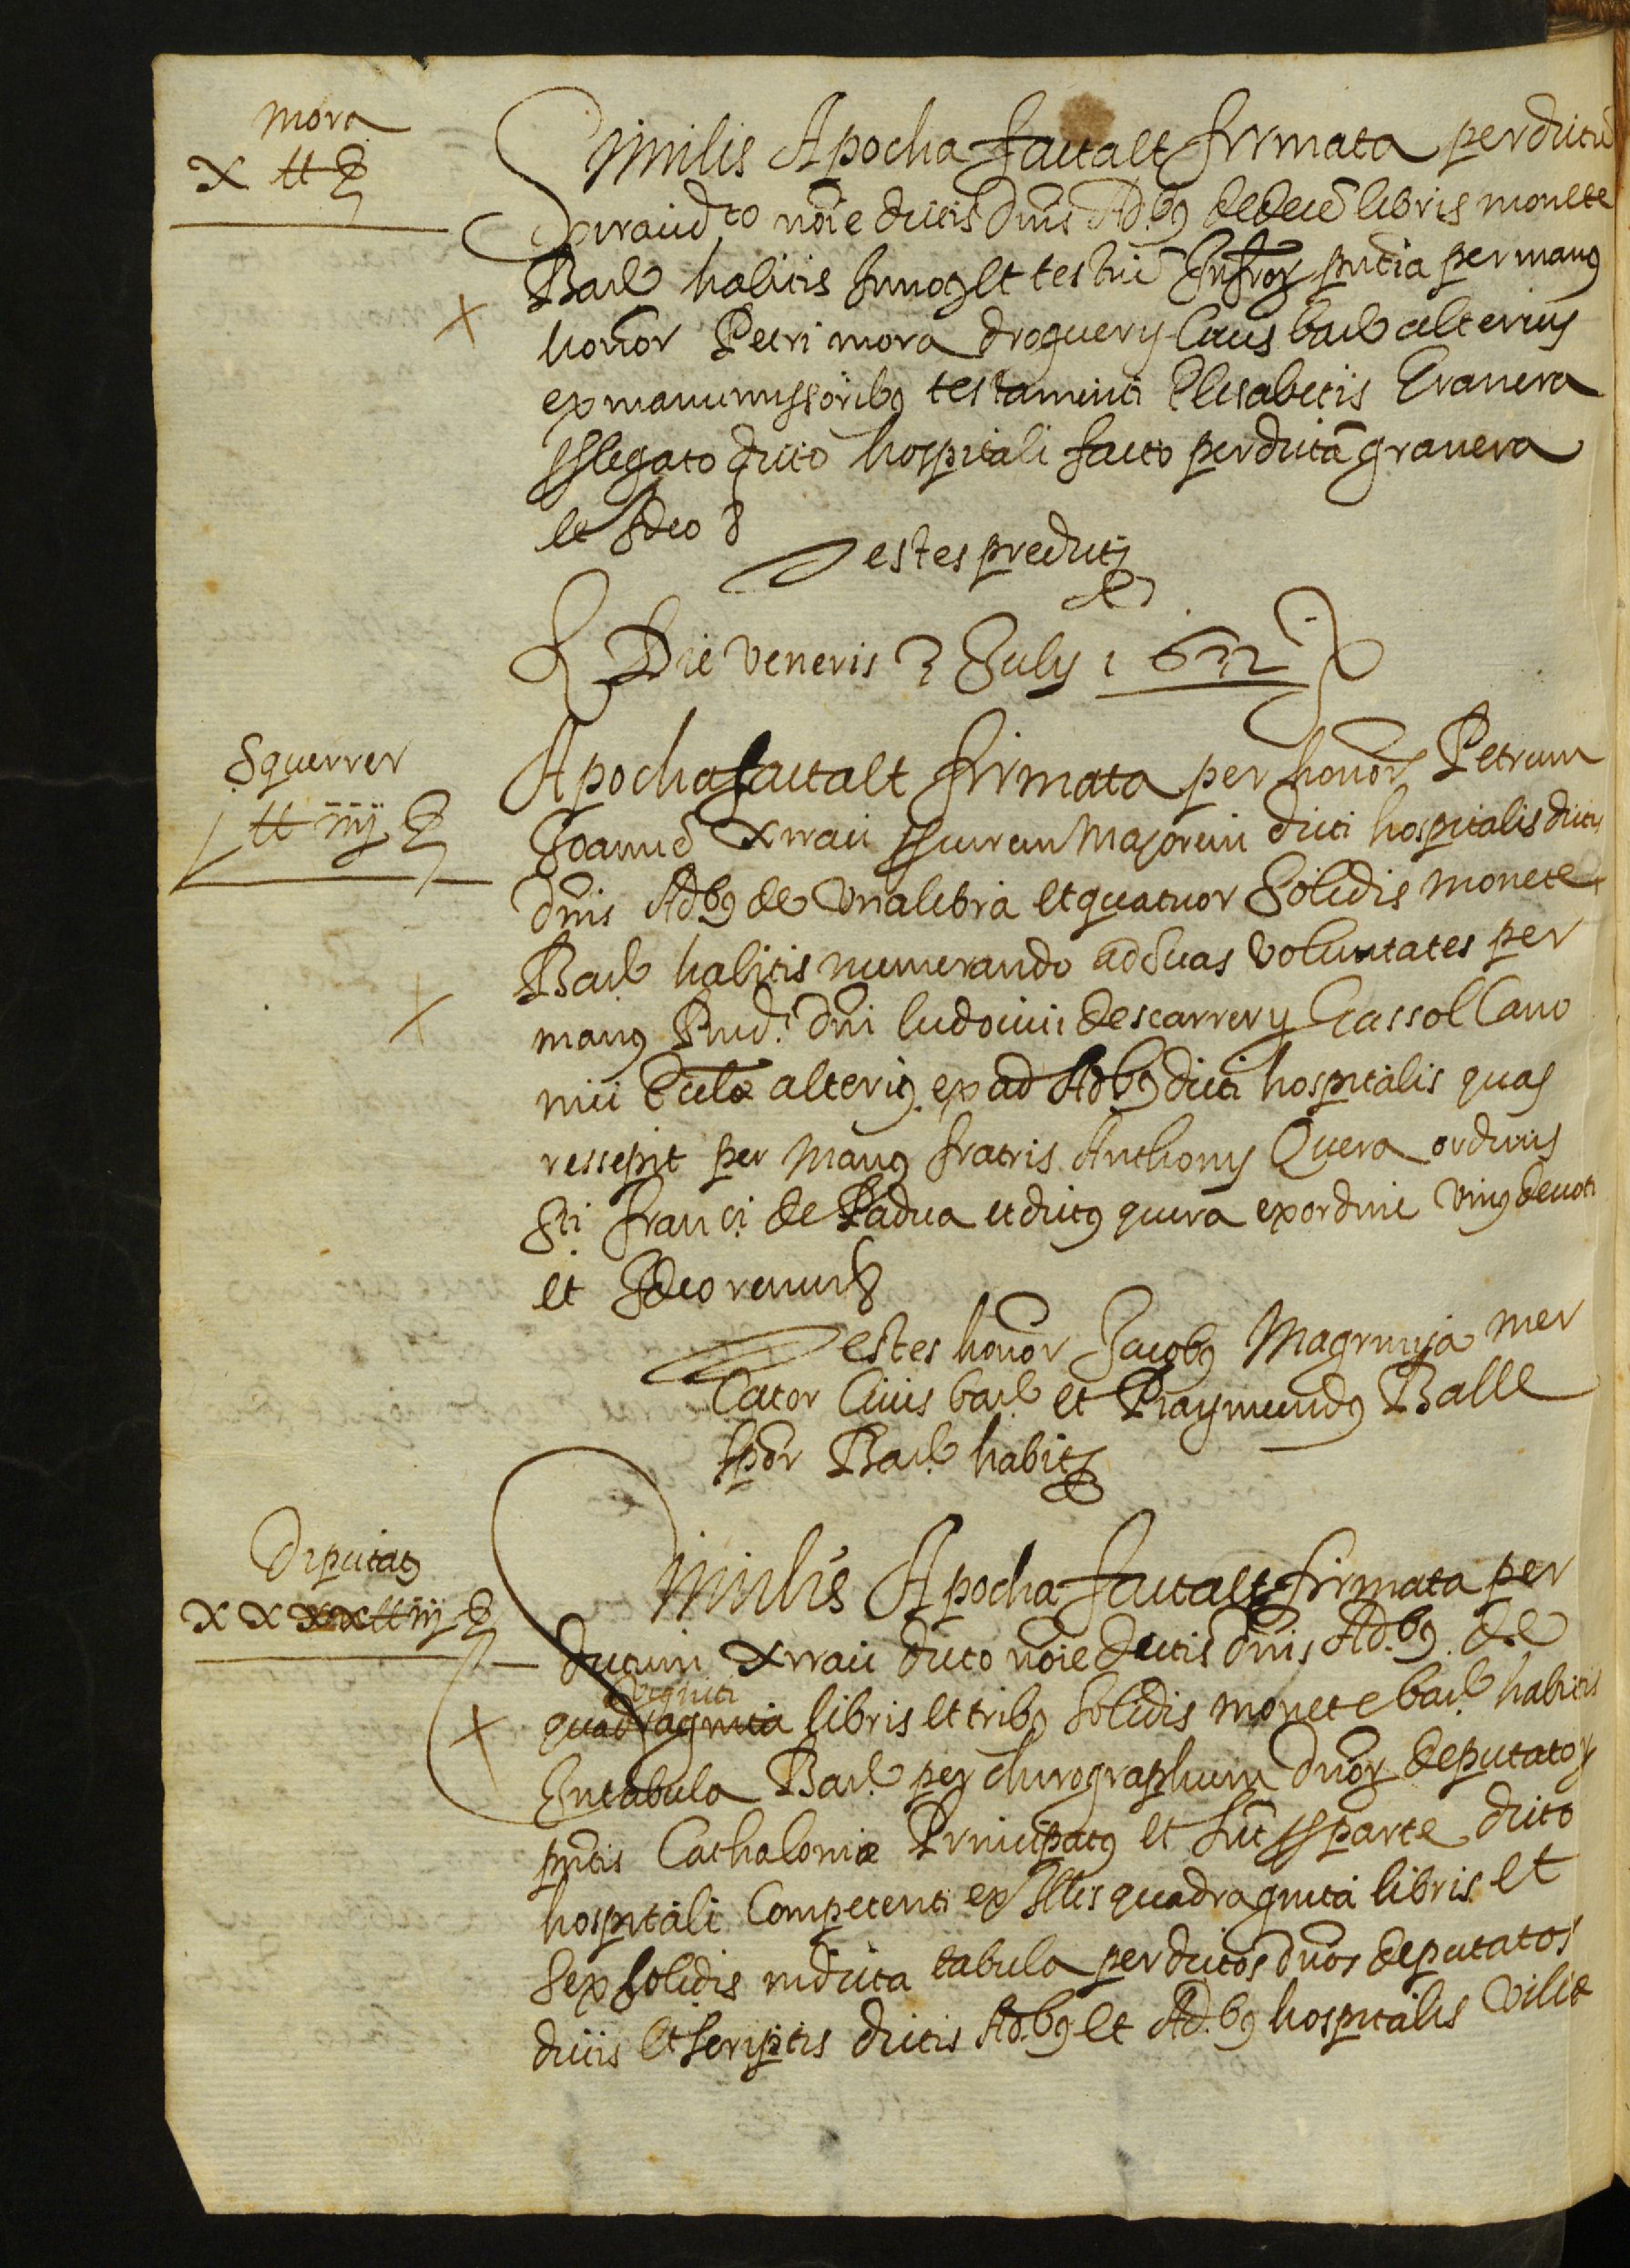 mora
x tt
Similis Apocha facta et firmata per dictũ
xirau dto noie dictis dnis Adbꝯ de decẽ libris monete
Barꝉ habitis In et testiũ pntia per manꝯ
honor Petri mora droguery Civis barꝉ alterius
ex manumissoribꝯ testamenti Elisabetis Granera
legato dicto hospitali facto per dictã granera
et Ideo
Testes predicti
Die Veneris 2 July 1632
Squerrer
tt iiij
Apocha facta et firmata per honor Petrum
Joannẽ xirau scurum Majorem dicti hospitalis dictis
dnis Adbꝯ de Una libra et quatuor Solidis monete
Barꝉ habitis numerando ad suas voluntates per
manꝯ Rnd. dni ludovici descarrer y Gassol Cano
nici alteriꝯ ex ad Adbꝯ dicti hospitalis quas
ressepit per manꝯ fratris Anthony Quera ordinis
Sti franci de Padua et dictꝯ quera ex ordine Viniꝯ devoti
et Ideo renun
Testes honor Jacobꝯ Magrinya mer
Cator Civis barꝉ et Raymundꝯ Balle
Barꝉ habit
Diputats
x x x x tt iij
Similis Apocha facta et firmata per
dictum xirau dicto noie dictis dnis Adbꝯ de
viginti
quadraginta libris et tribꝯ solidis monete barꝉ habitis
In tabula Barꝉ per chirographum dnor deputator
pntis Cathaloniæ Principatꝯ et sunt parte dicto
hospitali Competenti ex Illis quadraginta libris et
Sex solidis in dicta tabula per dictos dnos deputatos
dictis et scriptis dictis Adbꝯ et Adbꝯ hospitalis